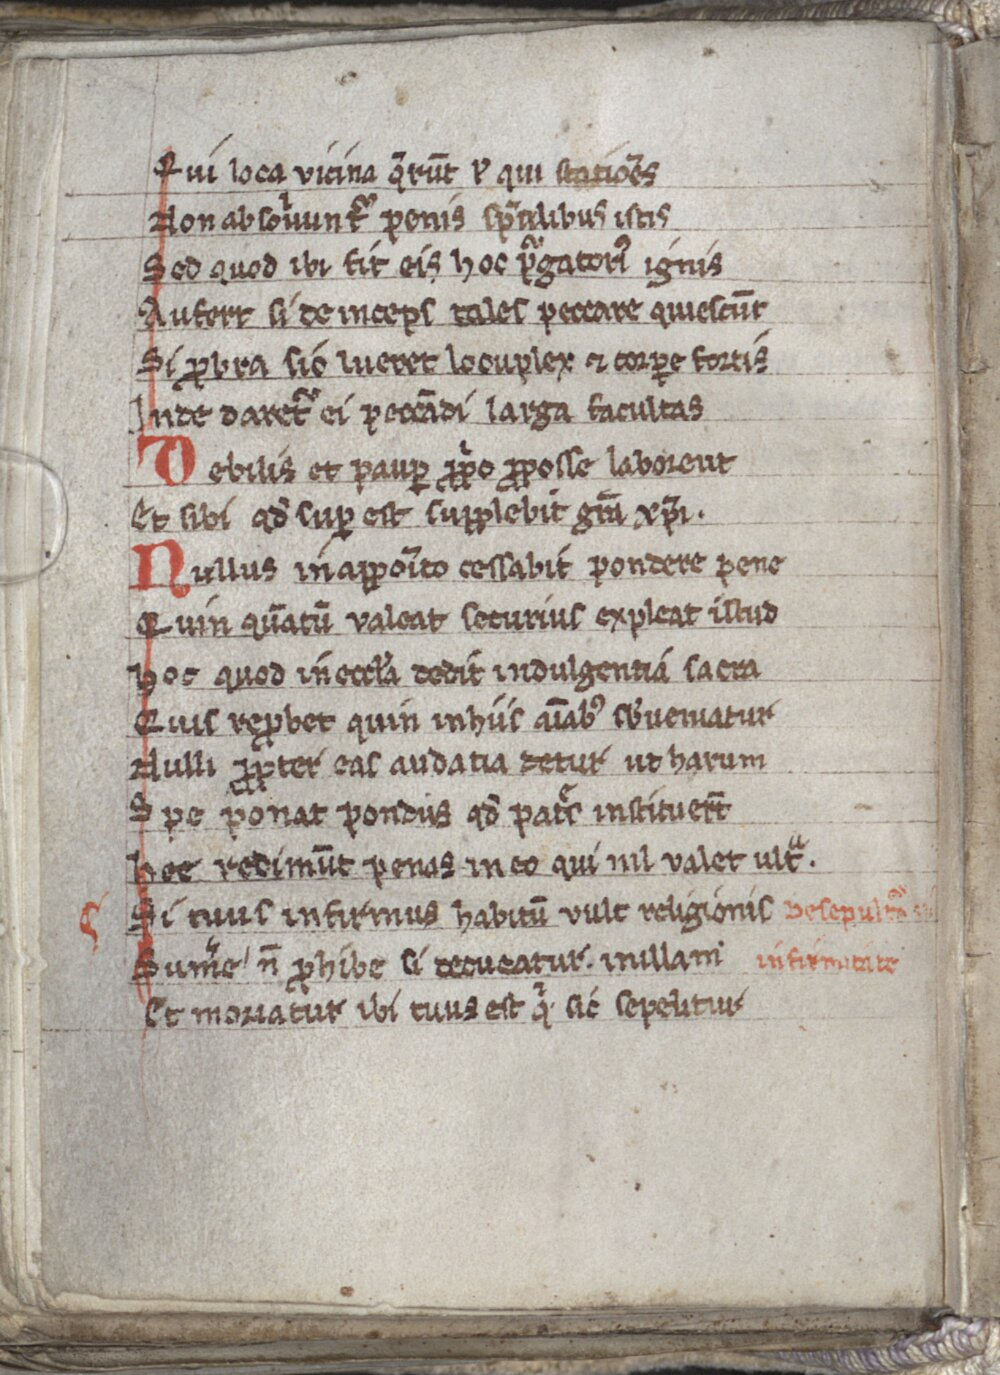 Qui loca vicina q̄rūt ⁊ qui statiōēs
Non absoluunt᷑ penis sp̄alibus istis
Sed quod ibi fit eis hoc pᷓgatoriꝰ ignis
Aufert si deinceps tales peccare quiescūt
Si ꝓbra sic lueret locuplex ⁊ corꝑe fortis
Inde daret᷑ ei peccādi larga facultas
Debilis et pauꝑ ꝓpͥo ꝓ posse laborent
Et sibi qd̄ suꝑest supplebit gr̄a xp̄i.
Nullus in apposito cessabit pondere pene
Quin quātū valeat securius expleat illud
Hoc quod in eccl̄ia dedit indulgentia sacra
Quis reꝓbet quin in hiis aīabꝰ subueniatur
Nulli ꝓpter eas audatia detur ut harum
Spe ponat pondus qd̄ patr̄s instituerūt
Hee redimūt penas in eo qui nil valet ultᷓ.
Si tuus infirmus habitū vult religionis De sepultᷓa
Sumͤe n̄ ꝓhibe si decueatur. in illam infirmitate
Et moriatur ibi tuus est qͥ sic sepelitur